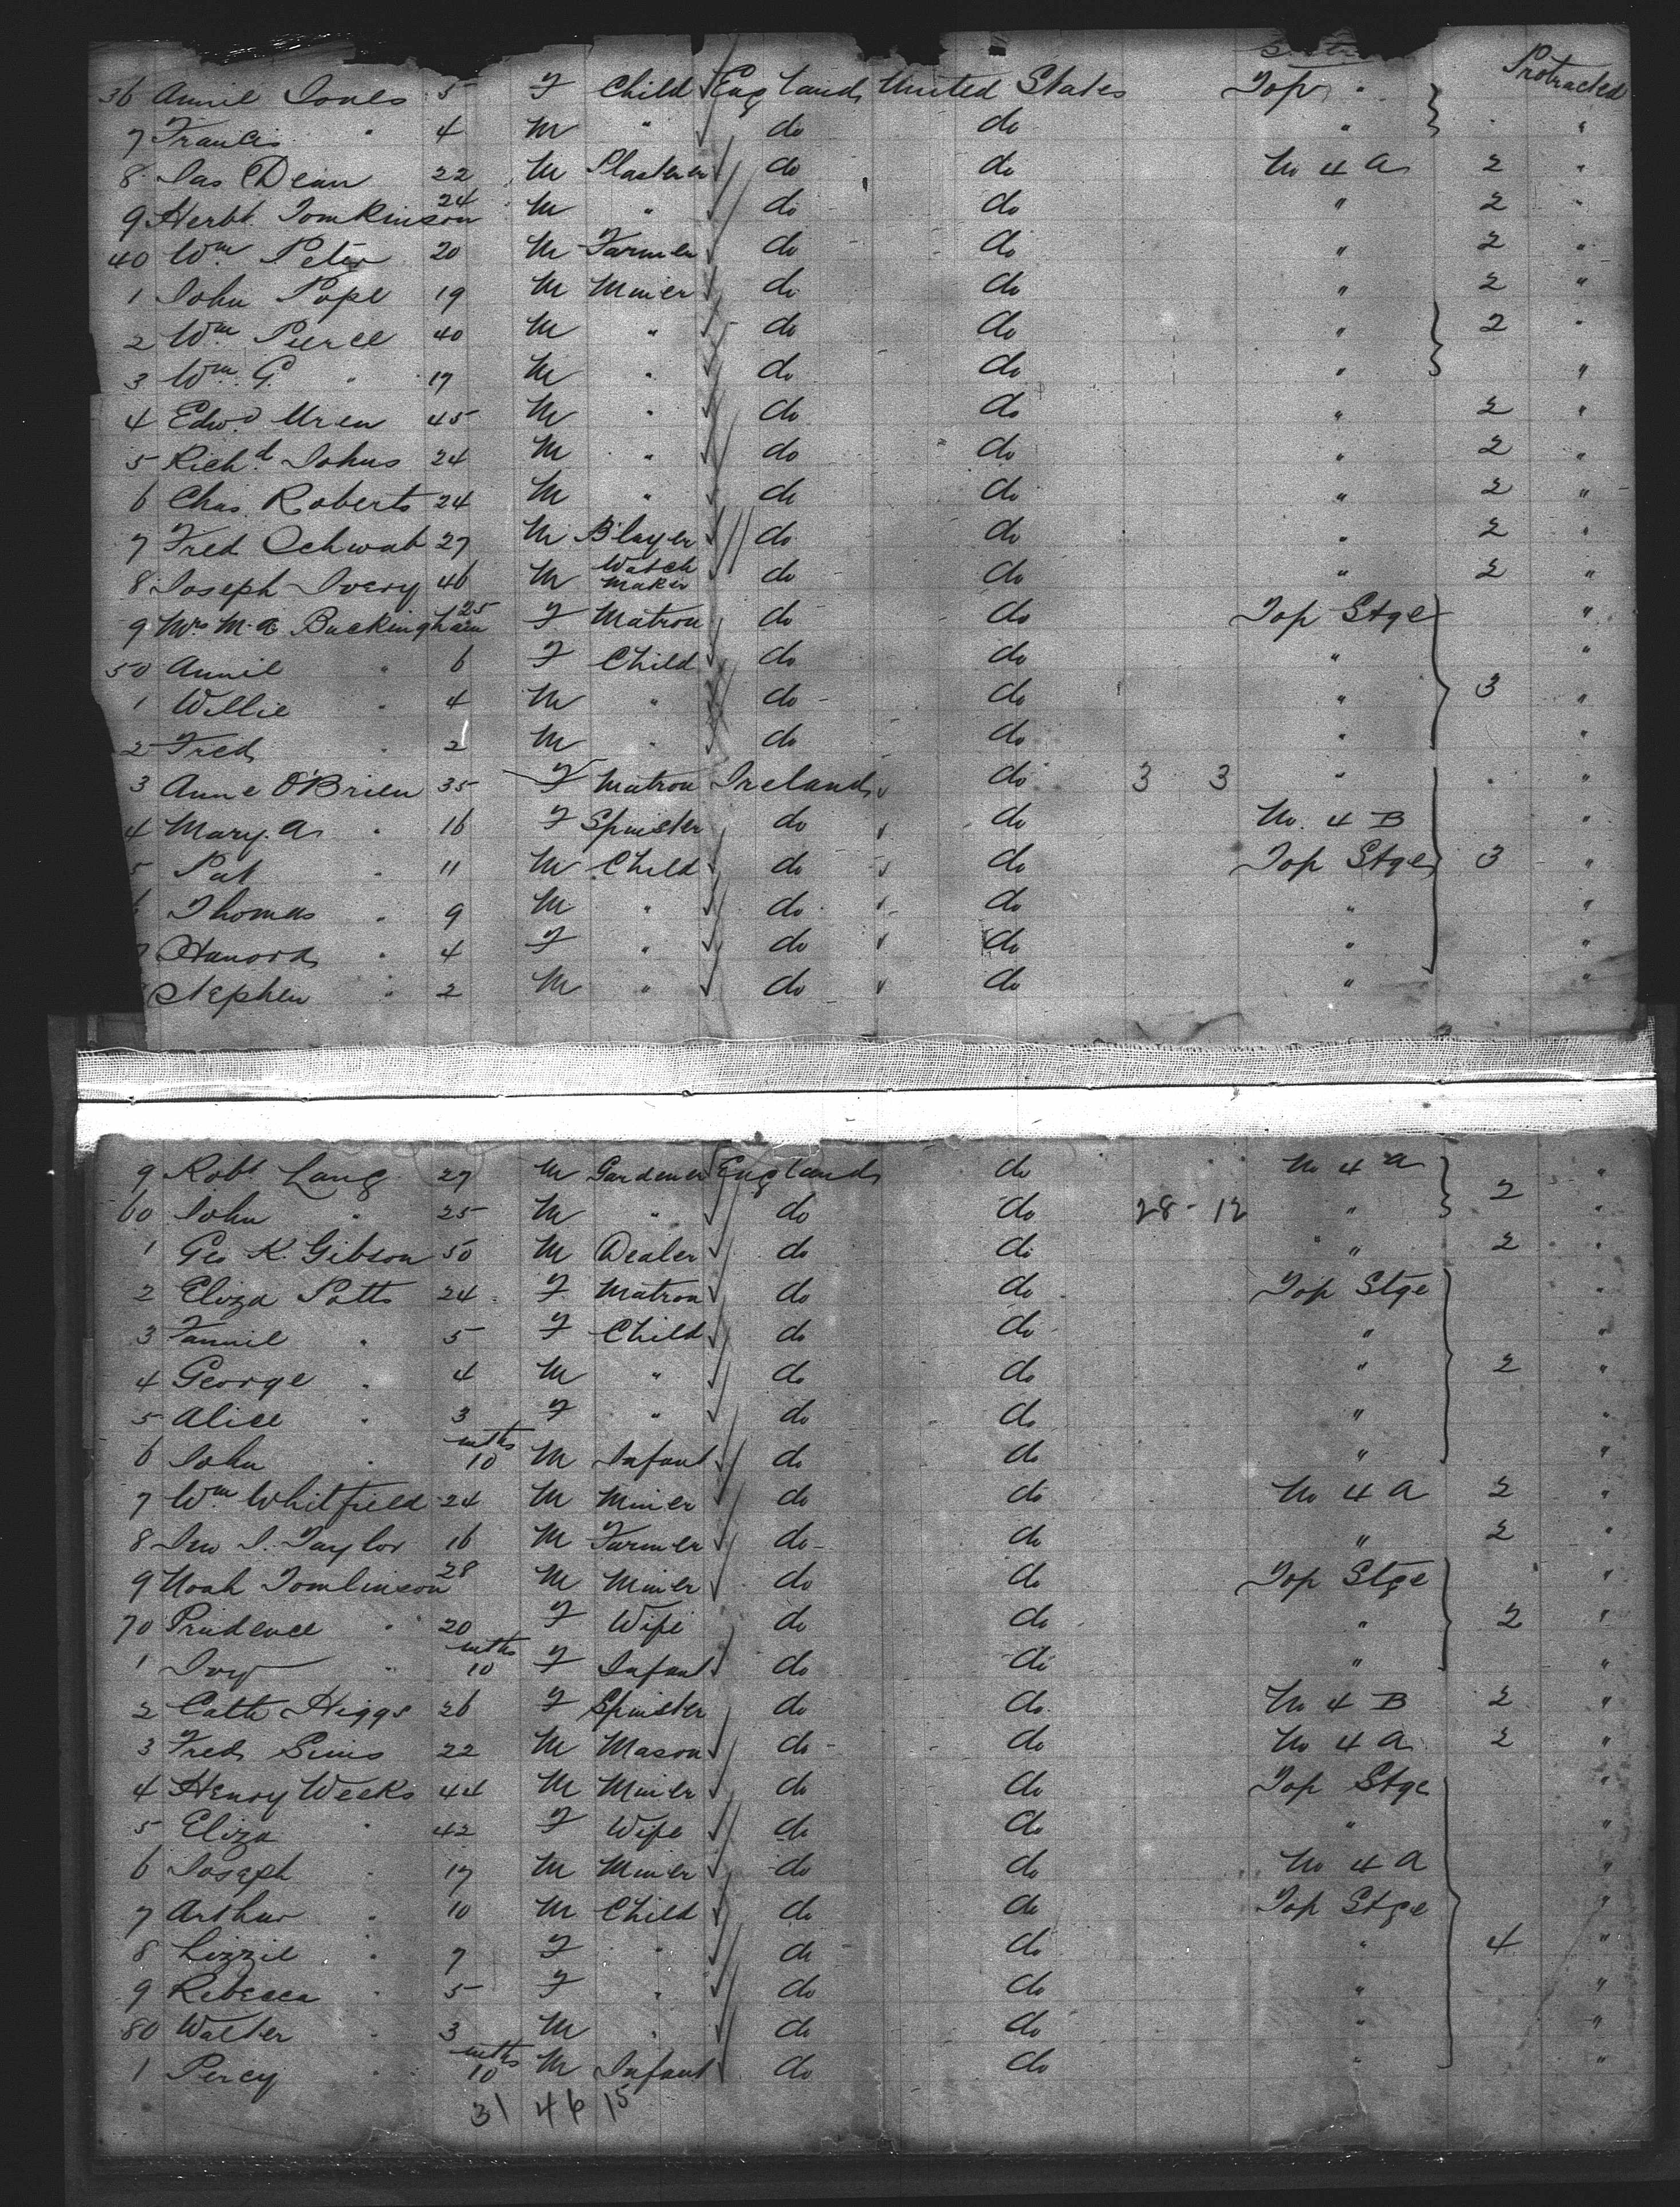 Protracted
36 Annie Jones 5 F Child England United States Top "
7 Francis " 4 M " do do " "
8 Jas Dean 22 M Plasterer do do No 4 A 2 "
9 Herbt. Tomkinson 24 M " do do " 2 "
40 Wm Peter 20 M Farmer do do " 2 "
1 John Pope 19 M Miner do do " 2 "
2 Wm Pierce 40 M " do do " 2 "
3 Wm G. " 17 M " do do " "
4 Edwd Uren 45 M " do do " 2 "
5 Richd Johns 24 M " do do " 2 "
6 Chas. Roberts 24 M " do do " 2 "
7 Fred Schwab 27 M B'layer do do " 2 "
8 Joseph Ivery 46 M Watch maker do do " 2 "
9 Mrs M. A Buckingham 25 F Matron do do Top Stge "
50 Annie " 6 F Child do do " "
1 Willie " 4 M " do do " 3 "
2 Fred " 2 M " do do " "
3 Anne O'Brien 35 F Matron Ireland do 3 3 " "
4 Mary. A " 16 F Spinster do do No. 4 B "
5 Pat " 11 M Child do do Top Stge 3 "
Thomas " 9 M " do do " "
7 Hanora " 4 F " do do " "
Stephen " 2 M " do do " "
9 Robt Lang 27 M Gardener England do No 4 A "
60 John " 25 M " do do 28-12 " 2 "
1 Geo K. Gibson 50 M Dealer do do " " 2 "
2 Eliza Potts 24 F Matron do do Top Stge "
3 Fannie " 5 F Child do do " "
4 George " 4 M " do do " 2 "
5 Alice " 3 F " do do " "
6 John " mths 10 M Infant do do " "
7 Wm Whitfield 24 M Miner do do No 4 A 2 "
8 Jno J. Taylor 16 M Farmer do do " 2 "
9 Noah Tomlinson 28 M Miner do do Top Stge "
70 Prudence " 20 F Wife do do " 2 "
1 Ivy " mths 10 F Infant do do " "
2 Cath Higgs 26 F Spinster do do No 4 B 2 "
3 Fred Sims 22 M Mason do do No 4 A 2 "
4 Henry Weeks 44 M Miner do do Top Stge "
5 Eliza " 42 F Wife do do " "
6 Joseph " 17 M Miner do do No 4 A "
7 Arthur " 10 M Child do do Top Stge "
8 Lizzie " 7 F " do do " 4 "
9 Rebecca " 5 F " do do " "
80 Walter " 3 M " do do " "
1 Percy " mths 10 M Infant do do " "
31 46 15